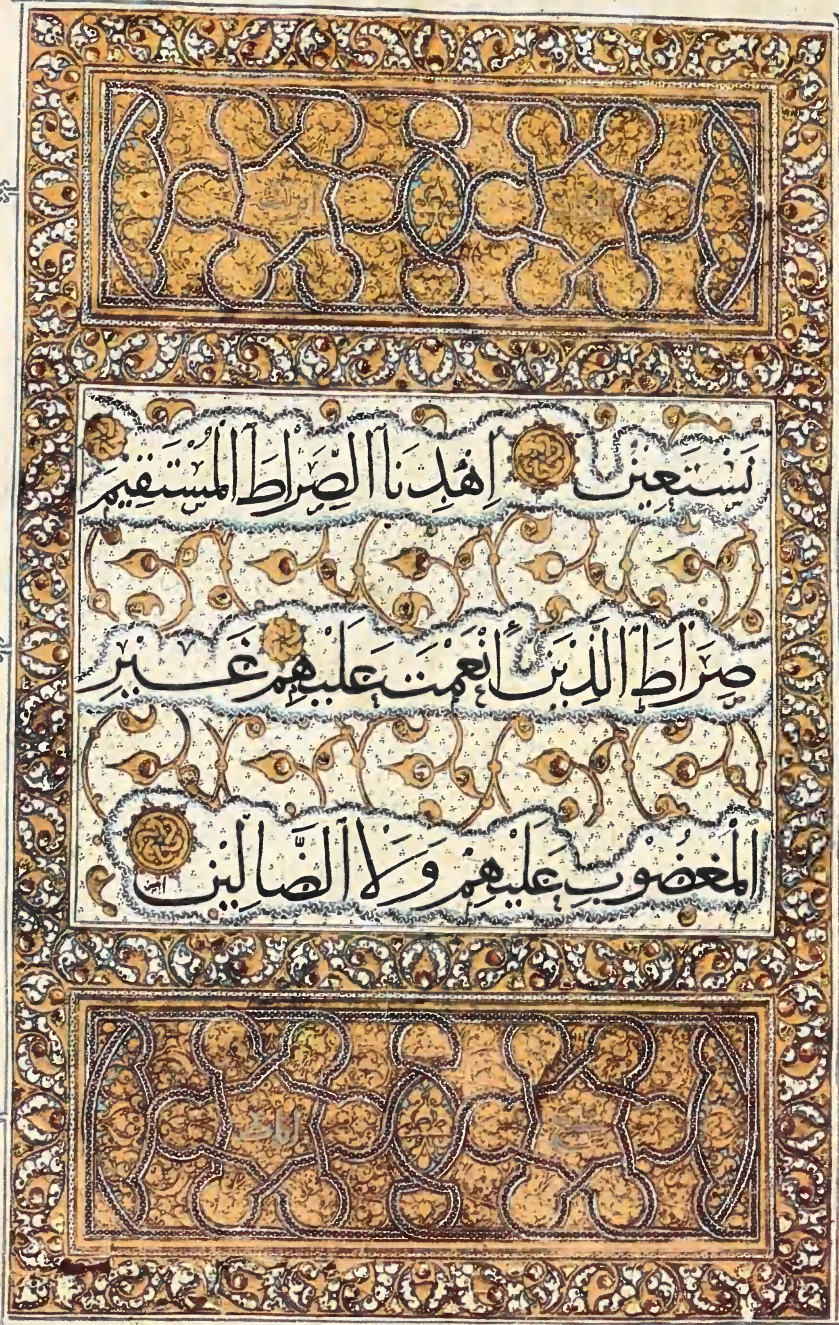 نَسْتَعِين اِهْدِنَا الصِّرَاطَ الْمُسْتَقِيمَ
صِرَاطَ الَّذِينَ أَنْعَمْتَ عَلَيْهِمْ غَيْرِ
الْمَغْضُوبِ عَلَيْهِمْ وَلَا الضَّالِّين